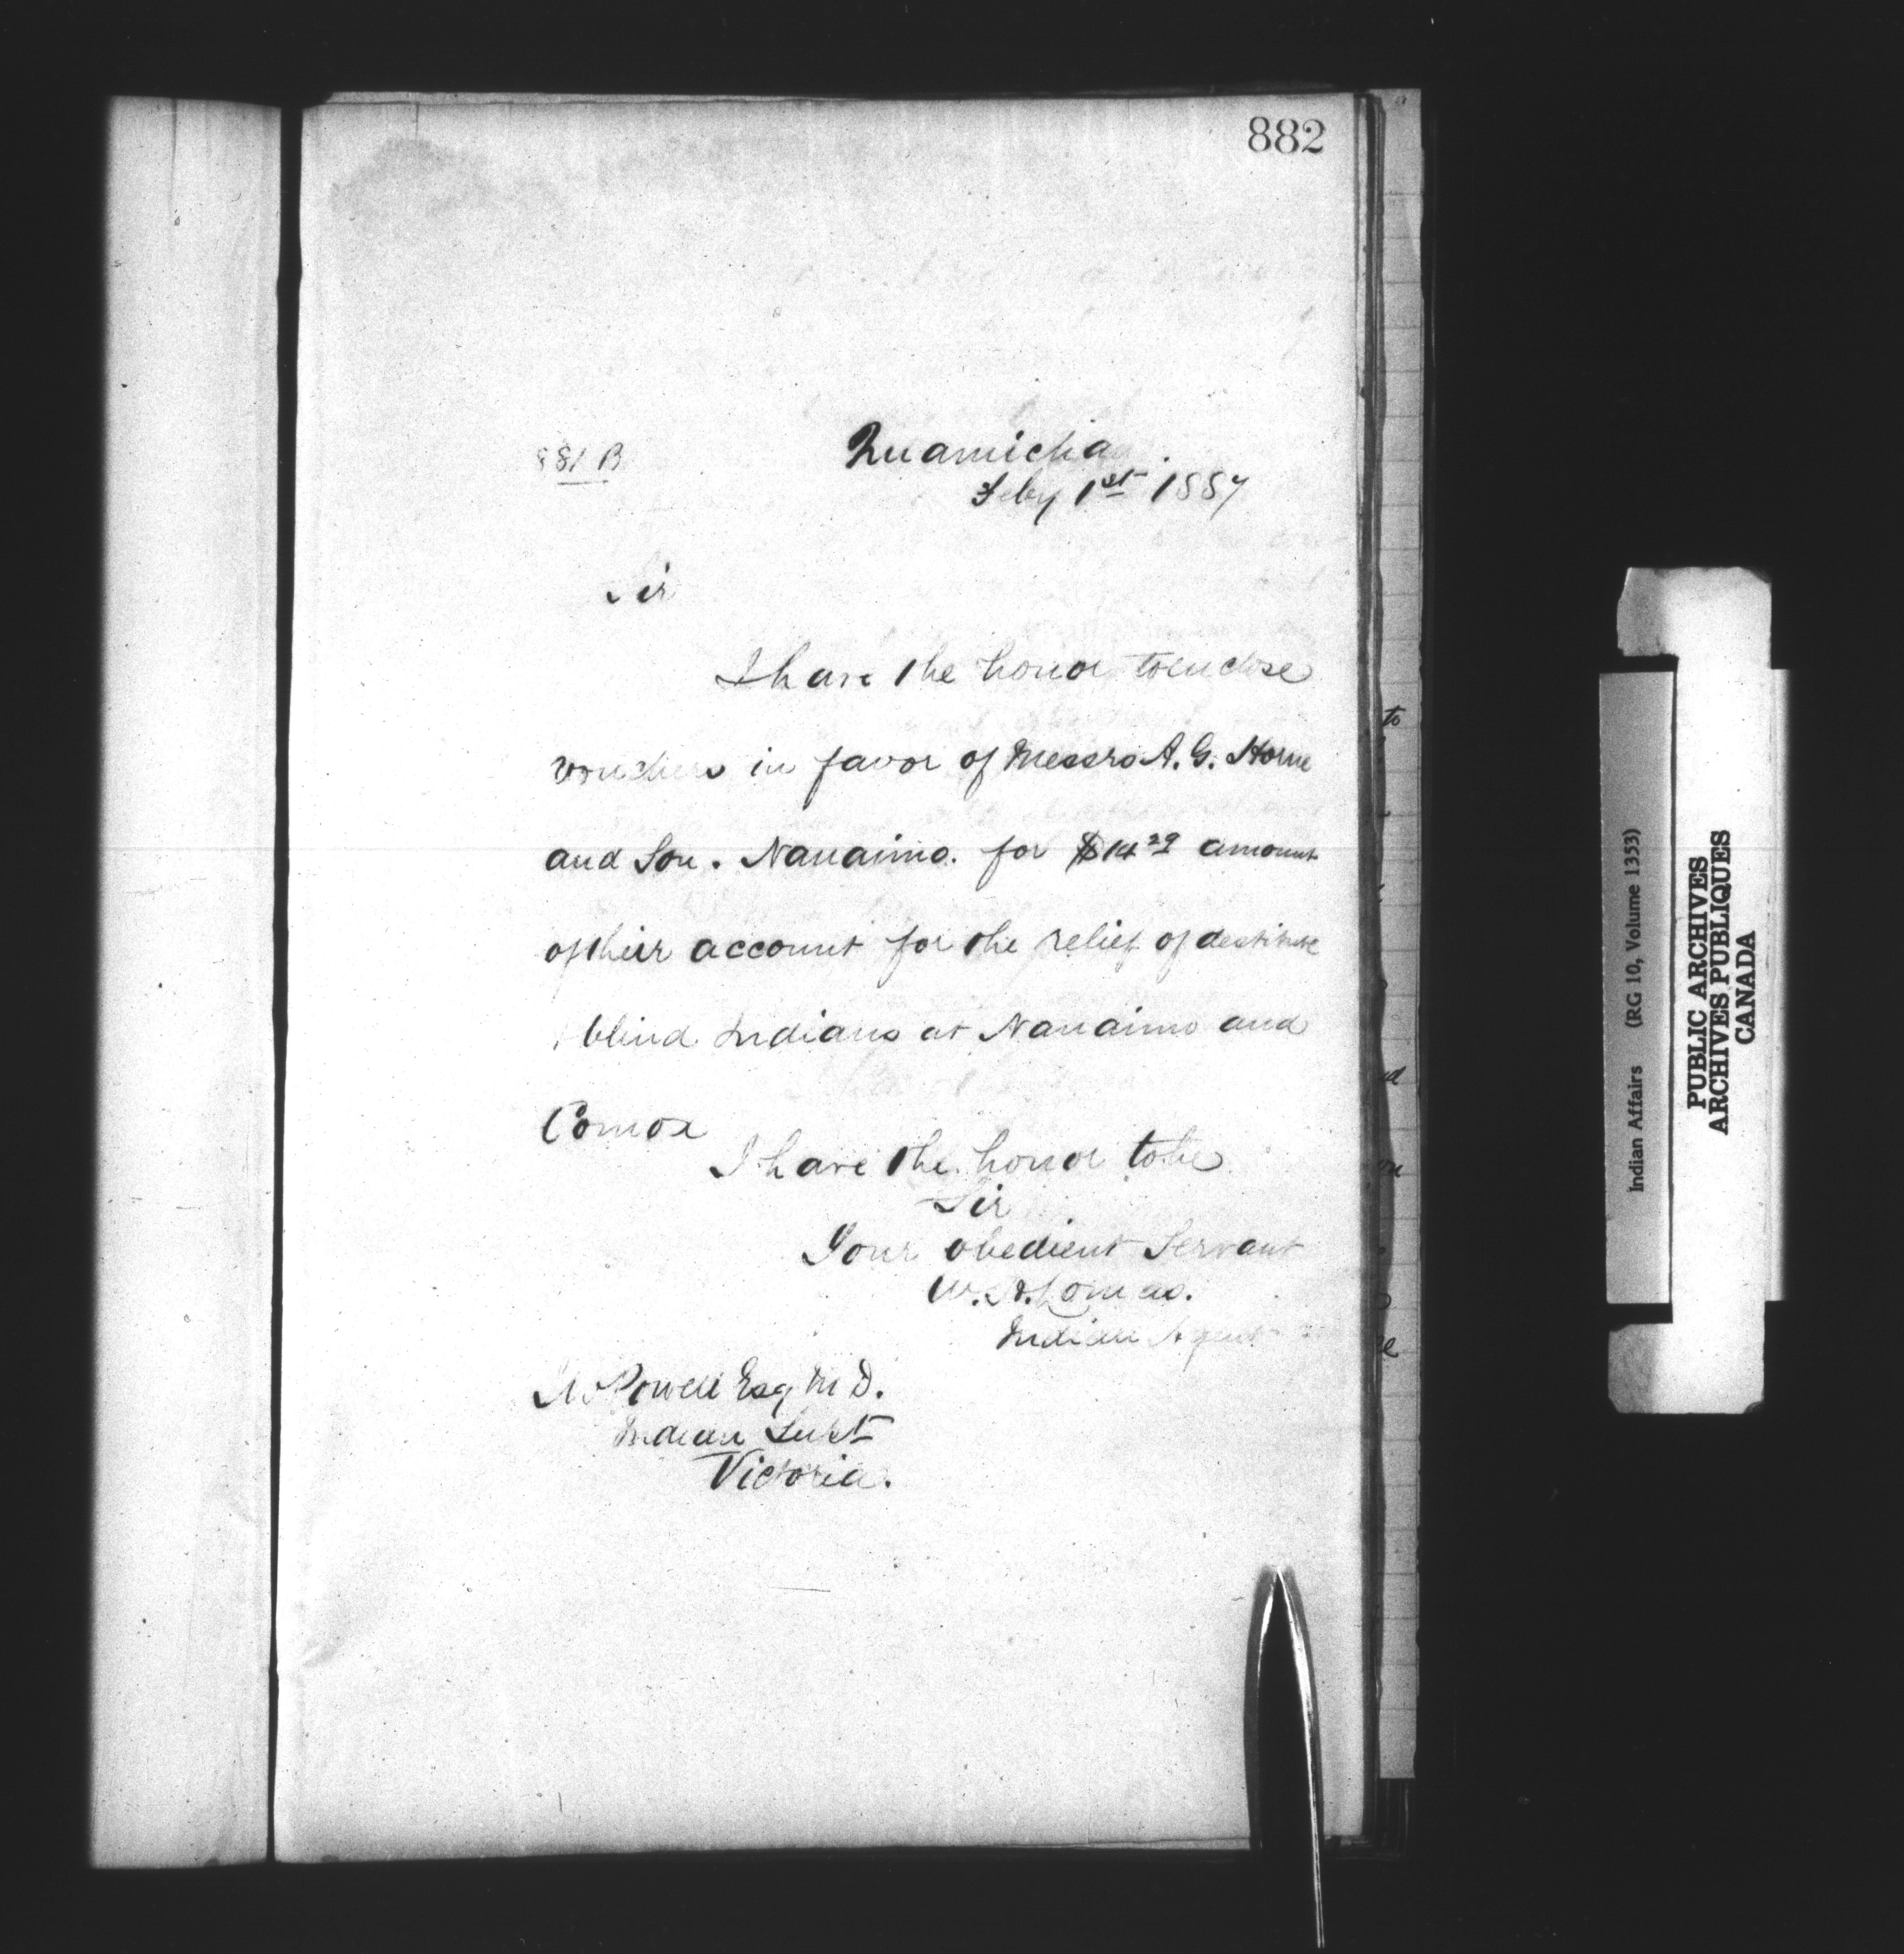 882
881 B
Quamichan
Feby 1st 1887
Sir
I have the honor to enclose
vouchers in favor of Messrs A. G. Horne
and Son. Nanaimo. for $14 29 amount
of their account for the relief of destitute
blind Indians at Nanaimo and
Comox
I have the honor to be
Sir
Your obedient Servant
W. H. Lomas.
Indian Agent
Powell Esq M D.
Indian Supt
Victoria.
to
Indian Affairs (RG 10, Volume 1353)
PUBLIC ARCHIVES
ARCHIVES PUBLIQUES
CANADA